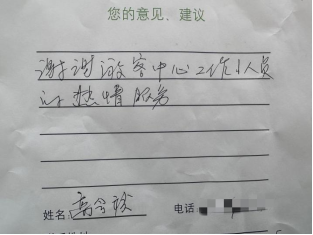 您的意见、建议
谢谢游客中心工作人员
的热情服务
姓名： 电话